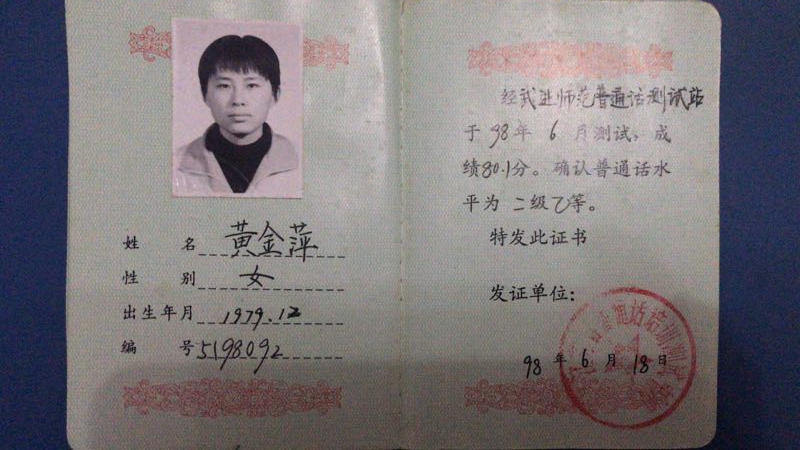 姓 名 黄金萍
性 别 女
出生年月 1979.12
编 号 5198092
经武进师范普通话测试站
于 98 年 6 月测试，成
绩80.1分。确认普通话水
平为 二级乙等。
特发此证书
发证单位：
普通话培训测
98 年 6 月 18 日